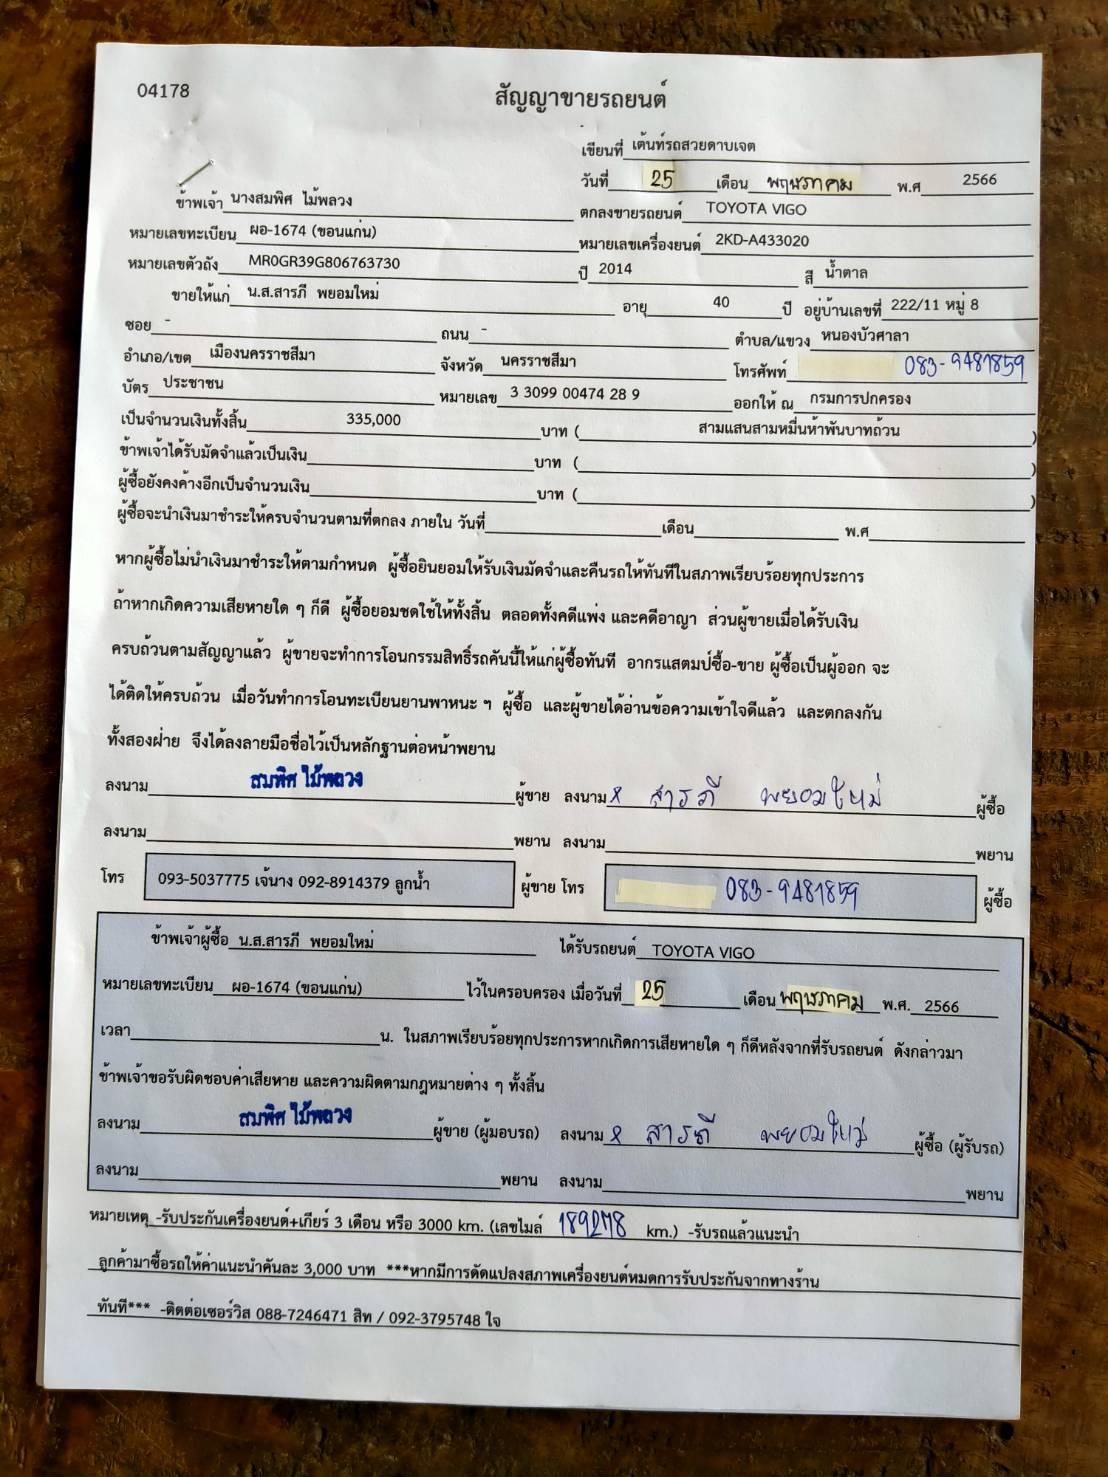 04178
สัญญาขายรถยนต์
เขียนที่ เต้นท์รถสวยดาบเจต
วันที่ 25 เดือน พฤษภาคม พ.ศ 2566
ข้าพเจ้า นางสมพิศ ไม้พลวง ตกลงขายรถยนต์ TOYOTA VIGO
หมายเลขทะเบียน ผอ-1674 (ขอนแก่น) หมายเลขเครื่องยนต์ 2KD-A433020
หมายเลขตัวถัง MR0GR39G806763730 ปี 2014 สี น้ำตาล
ขายให้แก่ น.ส.สารภี พยอมใหม่ อายุ 40 ปี อยู่บ้านเลขที่ 222/11 หมู่ 8
ซอย - ถนน - ตำบล/แขวง หนองบัวศาลา
อำเภอ/เขต เมืองนครราชสีมา จังหวัด นครราชสีมา โทรศัพท์ 083-9481859
บัตร ประชาชน หมายเลข 3 3099 00474 28 9 ออกให้ ณ กรมการปกครอง
เป็นจำนวนเงินทั้งสิ้น 335,000 บาท ( สามแสนสามหมื่นห้าพันบาทถ้วน )
ข้าพเจ้าได้รับมัดจำแล้วเป็นเงิน บาท ( )
ผู้ซื้อยังคงค้างอีกเป็นจำนวนเงิน บาท ( )
ผู้ซื้อจะนำเงินมาชำระให้ครบจำนวนตามที่ตกลง ภายใน วันที่ เดือน พ.ศ
หากผู้ซื้อไม่นำเงินมาชำระให้ตามกำหนด ผู้ซื้อยินยอมให้รับเงินมัดจำและคืนรถให้ทันทีในสภาพเรียบร้อยทุกประการ
ถ้าหากเกิดความเสียหายใด ๆ ก็ดี ผู้ซื้อยอมชดใช้ให้ทั้งสิ้น ตลอดทั้งคดีแพ่ง และคดีอาญา ส่วนผู้ขายเมื่อได้รับเงิน
ครบถ้วนตามสัญญาแล้ว ผู้ขายจะทำการโอนกรรมสิทธิ์รถคันนี้ให้แก่ผู้ซื้อทันที อากรแสตมป์ซื้อ-ขาย ผู้ซื้อเป็นผู้ออก จะ
ได้ติดให้ครบถ้วน เมื่อวันทำการโอนทะเบียนยานพาหนะ ฯ ผู้ซื้อ และผู้ขายได้อ่านข้อความเข้าใจดีแล้ว และตกลงกัน
ทั้งสองฝ่าย จึงได้ลงลายมือชื่อไว้เป็นหลักฐานต่อหน้าพยาน
ลงนาม สมพิศ ไม้พลวง ผู้ขาย ลงนาม x สารภี พยอมใหม่ ผู้ซื้อ
ลงนาม พยาน ลงนาม พยาน
โทร 093-5037775 เจ้นาง 092-8914379 ลูกน้ำ ผู้ขาย โทร 083-9481859 ผู้ซื้อ
ข้าพเจ้าผู้ซื้อ น.ส.สารภี พยอมใหม่ ได้รับรถยนต์ TOYOTA VIGO
หมายเลขทะเบียน ผอ-1674 (ขอนแก่น) ไว้ในครอบครอง เมื่อวันที่ 25 เดือน พฤษภาคม พ.ศ. 2566
เวลา น. ในสภาพเรียบร้อยทุกประการหากเกิดการเสียหายใด ๆ ก็ดีหลังจากที่รับรถยนต์ ดังกล่าวมา
ข้าพเจ้าขอรับผิดชอบค่าเสียหาย และความผิดตามกฎหมายต่าง ๆ ทั้งสิ้น
ลงนาม สมพิศ ไม้พลวง ผู้ขาย (ผู้มอบรถ) ลงนาม x สารภี พยอมใหม่ ผู้ซื้อ (ผู้รับรถ)
ลงนาม พยาน ลงนาม พยาน
หมายเหตุ -รับประกันเครื่องยนต์+เกียร์ 3 เดือน หรือ 3000 km. (เลขไมล์ 189278 km.) -รับรถแล้วแนะนำ
ลูกค้ามาซื้อรถให้ค่าแนะนำคันละ 3,000 บาท ***หากมีการดัดแปลงสภาพเครื่องยนต์หมดการรับประกันจากทางร้าน
ทันที*** -ติดต่อเซอร์วิส 088-7246471 สิท / 092-3795748 ใจ